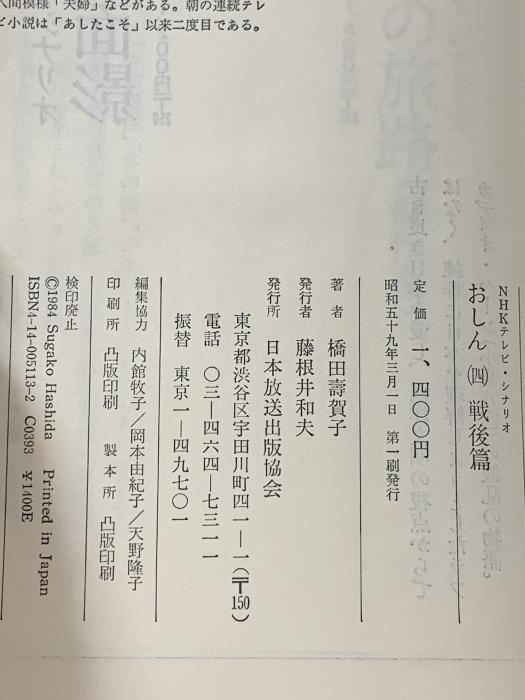 人間模様「夫婦」などがある。朝の連続テレ
ビ小説は「あしたこそ」以来二度目である。
NHKテレビ・シナリオ
おしん ㈣ 戦後篇
定価 一、四〇〇円
昭和五十九年三月一日 第一刷発行
著者 橋田壽賀子
発行者 藤根井和夫
発行所 日本放送出版協会
東京都渋谷区宇田川町四一―一(〒150)
電話 〇三―四六四―七三一一
振替 東京一―四九七〇一
編集協力 内館牧子/岡本由紀子/天野隆子
印刷所 凸版印刷 製本所 凸版印刷
検印廃止
©1984 Sugako Hashida Printed in Japan
ISBN4-14-005113-2 C0393 ¥1400E